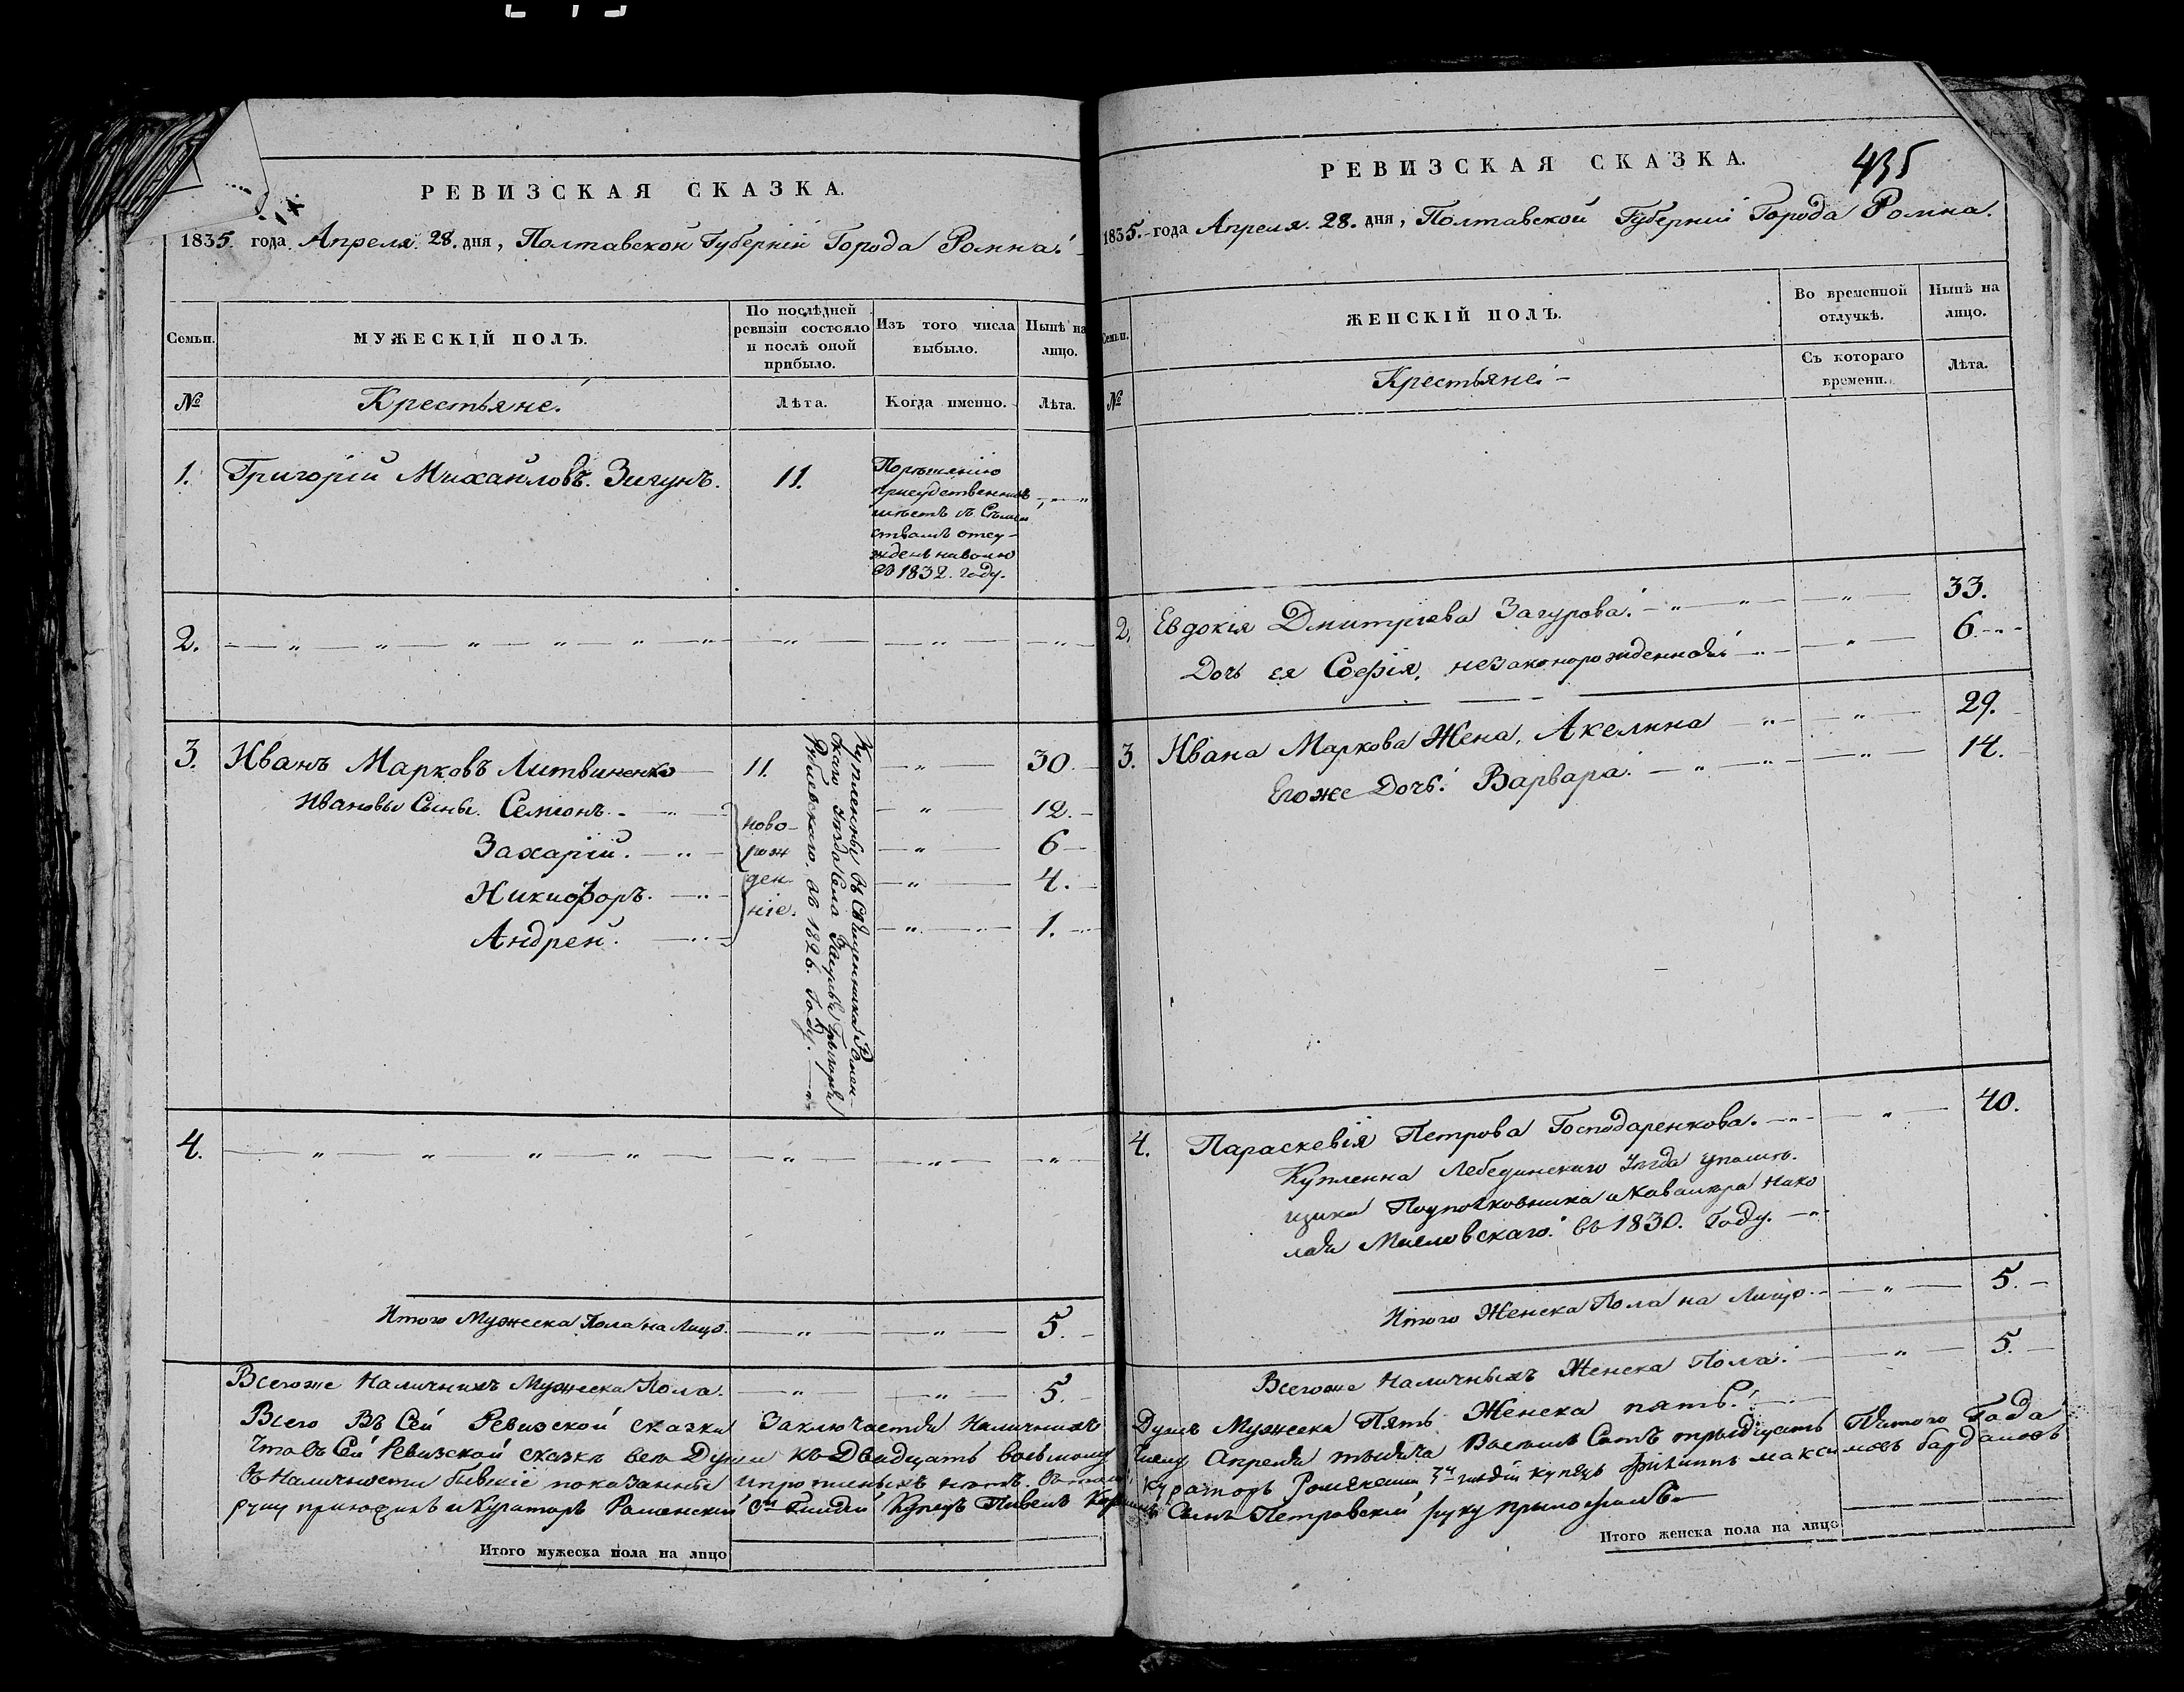 РЕВИЗСКАЯ СКАЗКА.
1835. года Апреля. 28. дня, Полтавской Губерніи Города Ромна.
Семьи.
МУЖЕСКІЙ ПОЛЪ.
По послѣдней ревизіи состояло и послѣ оной прибыло.
Изъ того числа выбыло.
Нынѣ на лицо.
№
Крестьяне.
Лѣта.
Когда именно.
Лѣта.
1. Григорій Михайловъ Зигунъ. 11.
Порѣшенію
присудственныхъ
мѣстъ
отсу-
жденъ наволю
въ 1832. году.
2.
3. Иванъ Марковъ Литвиненко 11. 30.
Ивановы Сыны. Семіонъ. 12.
Захарій. 6
Никифоръ. 4.
Андрей. 1.
ново-
рож
ден
ніе.
Купленны въ Священника Ромен-
скаго уѣзда Села Григорія
въ 1826. Году.
4.
Итого Мужеска Пола на Лицо. 5.
Всегоже Наличныхъ Мужеска Пола. 5.
Всего Въ Сей Ревизской сказки Заключается Наличныхъ
Что въ Сей Ревизской сказкѣ все Души къ Двадцать восьмому
въ Наличности бывшіе показанны и нѣтъ,
Кураторъ Роменскій 3й Гильдіи Купецъ Павелъ
Итого мужеска пола на лицо
РЕВИЗСКАЯ СКАЗКА.
435
1835. года Апреля. 28. дня, Полтавской Губерніи Города Ромна.
Семьи.
ЖЕНСКІЙ ПОЛЪ.
Во временной отлучкѣ.
Нынѣ на лицо.
№
Крестьяне.
Съ котораго времени.
Лѣта.
2. Евдокія Дмитріева Загурова. 33.
Дочь ея Софія, незаконорожденная 6.
3. Ивана Маркова Жена, Акелина 29.
Егоже Дочь: Варвара. 14.
4. Параскевія Петрова Господаренкова. 40.
Купленна Лебединскаго уѣзда у помѣ-
щика Подполковника и Кавалера Нико
лая въ 1830. Году.
Итого Женска Пола на Лицо. 5.
Всегоже Наличныхъ Женска Пола. 5.
Душъ Мужеска Пять Женска пять.
Апреля тысяча Восемь Сотъ тридцать Пятого Года
Кураторъ Роменский 3й гильдіи купецъ Филиппъ максимовъ
Сынъ Петровскій руку приложилъ
Итого женска пола на лицо